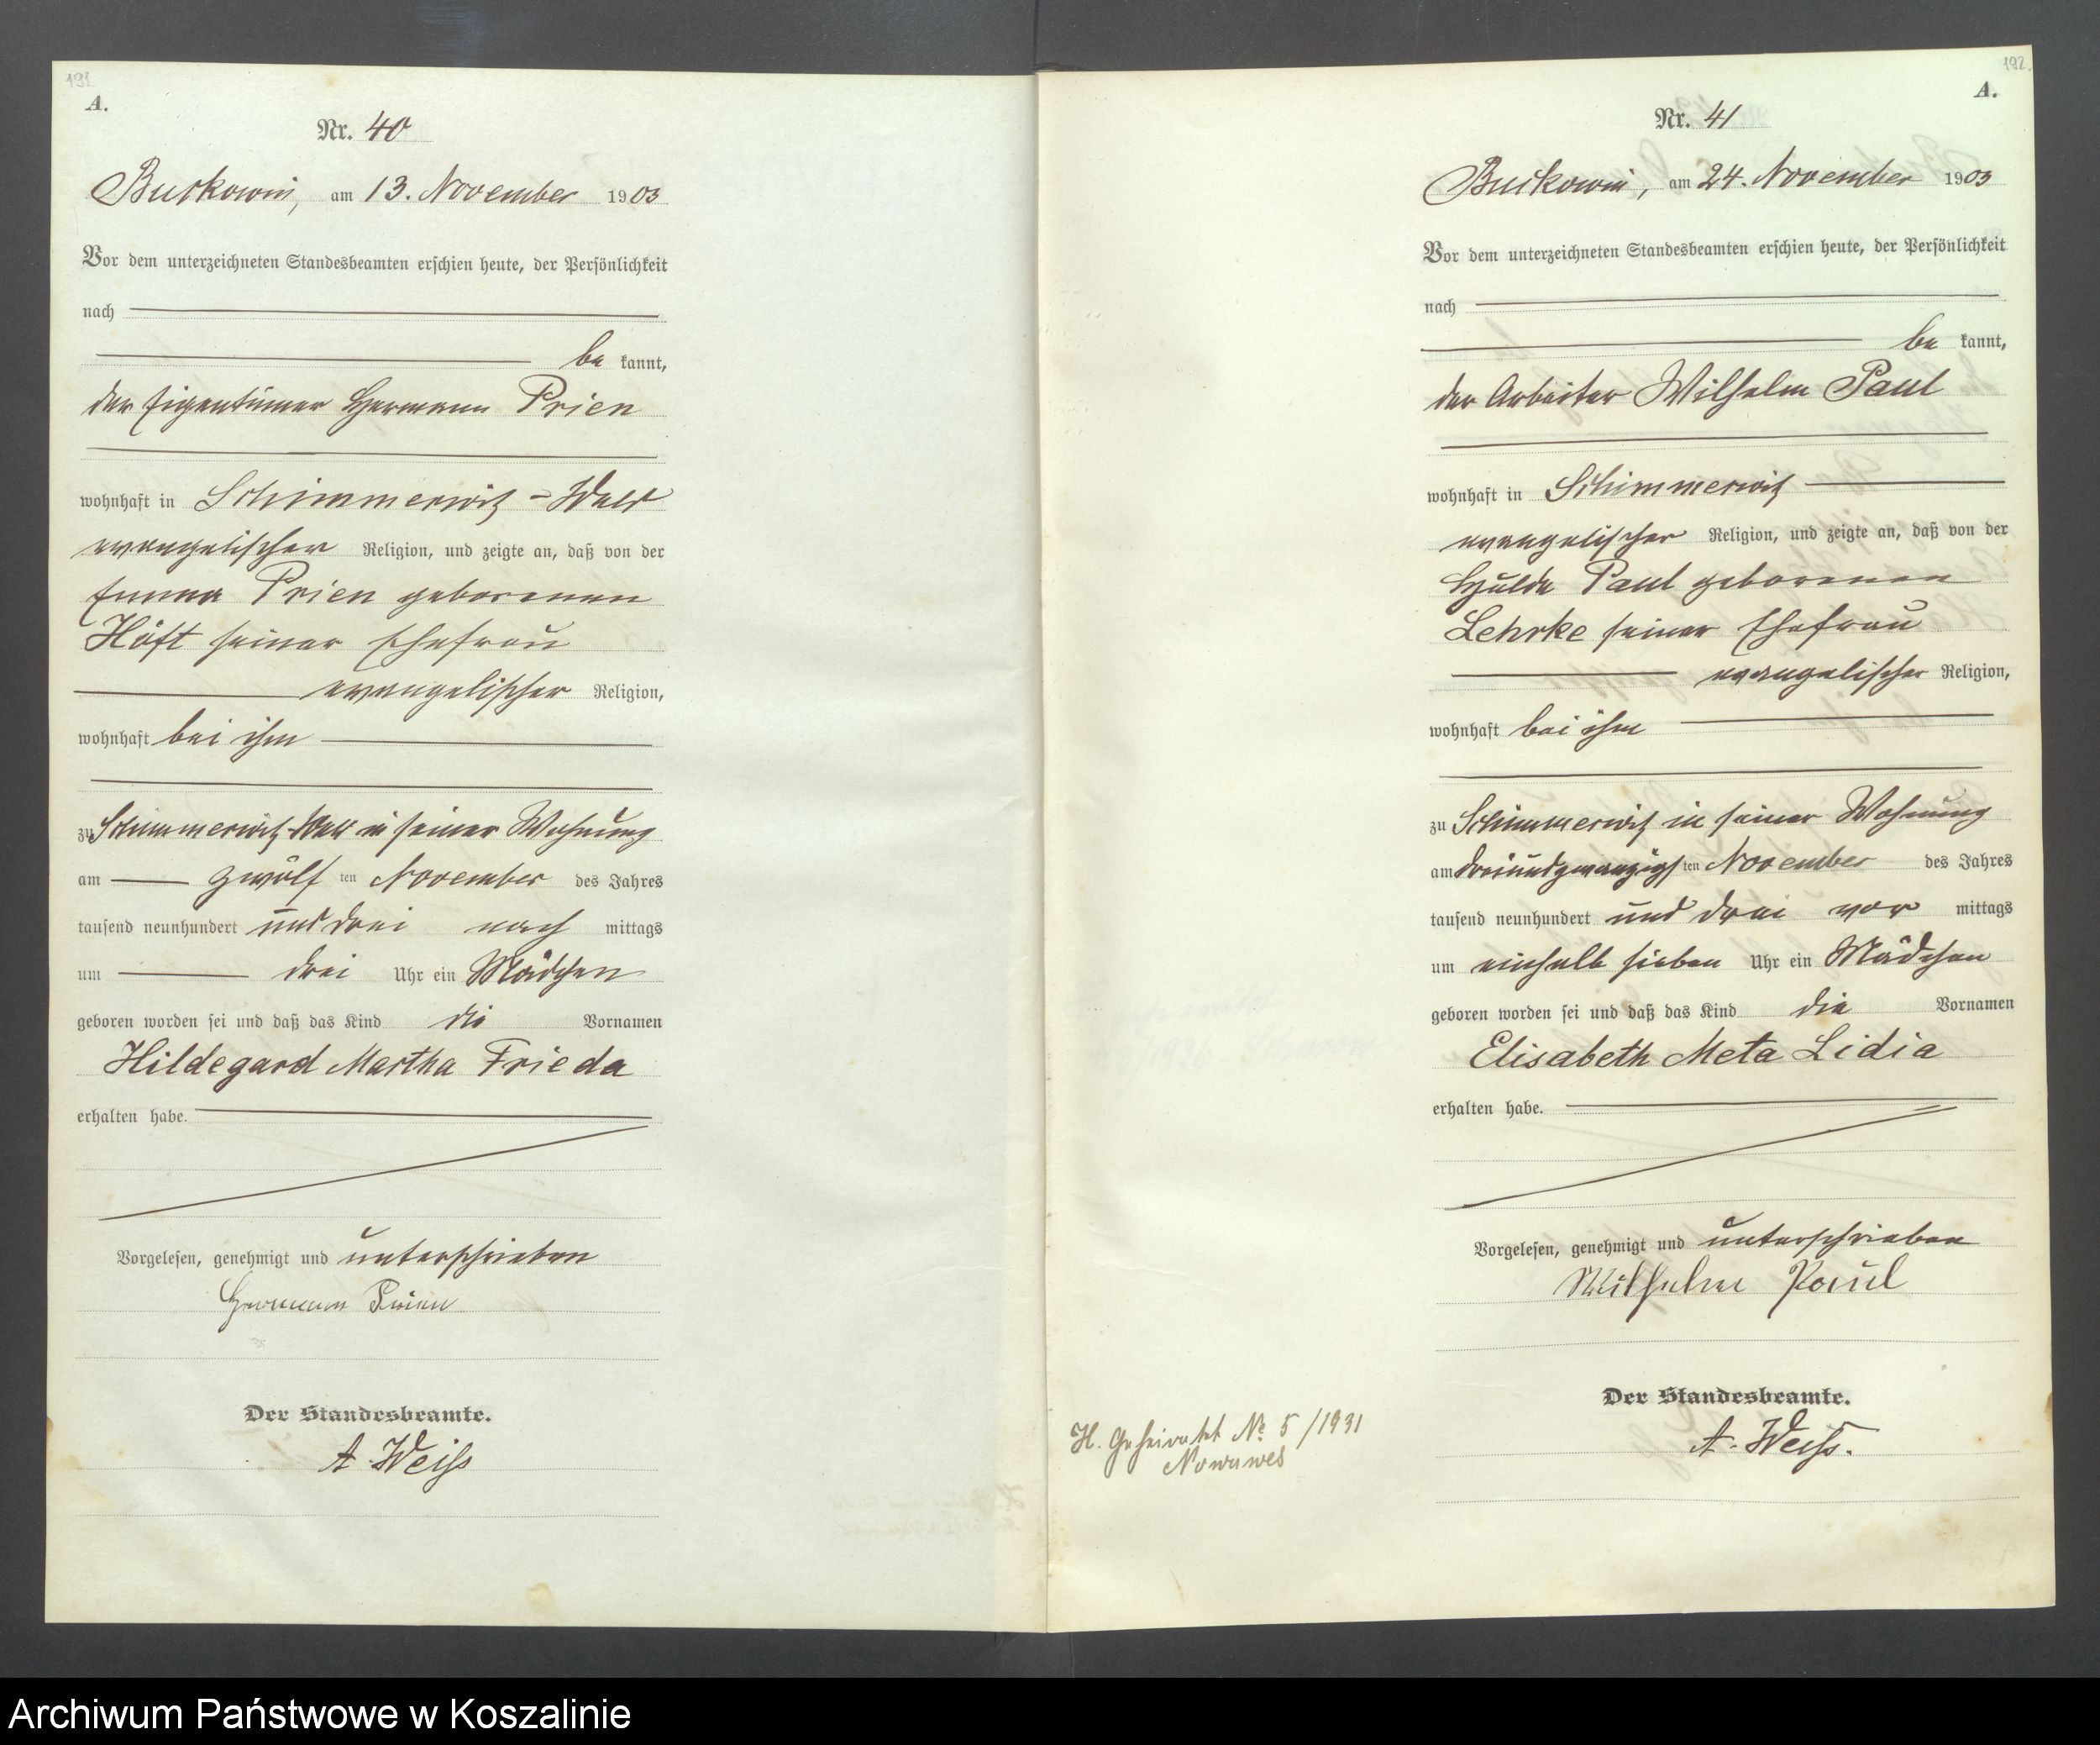 191
A.
Nr. 40
Buckowin, am 13. November 1903
Vor dem unterzeichneten Standesbeamten erschien heute, der Persönlichkeit
nach
be kannt,
der Eigentümer Hermann Prien
wohnhaft in Schimmerwitz = Wald
evangelischer Religion, und zeigte an, daß von der
Emma Prien geborenen
Höft seiner Ehefrau
evangelischer Religion,
wohnhaft bei ihm
zu Schimmerwitz-Wald in seiner Wohnung
am zwölf ten November des Jahres
tausend neunhundert und drei nach mittags
um drei Uhr ein Mädchen
geboren worden sei und daß das Kind die Vornamen
Hildegard Martha Frieda
erhalten habe.
Vorgelesen, genehmigt und unterschrieben
Hermann Prien
Der Standesbeamte.
A. Weiß
192.
A.
Nr. 41
Buckowin, am 24. November 1903
Vor dem unterzeichneten Standesbeamten erschien heute, der Persönlichkeit
nach
be kannt,
der Arbeiter Wilhelm Paul
wohnhaft in Schimmerwitz
evangelischer Religion, und zeigte an, daß von der
Hulda Paul geborenen
Lehrke seiner Ehefrau
evangelischer Religion,
wohnhaft bei ihm
zu Schimmerwitz in seiner Wohnung
am dreiundzwanzigs ten November des Jahres
tausend neunhundert und drei vor mittags
um einhalb sieben Uhr ein Mädchen
geboren worden sei und daß das Kind die Vornamen
Elisabeth Meta Lidia
erhalten habe.
Vorgelesen, genehmigt und unterschrieben
Wilhelm Paul
Der Standesbeamte.
A. Weiß.
H. Geheiratet No 5/1931
Nowawes
Archiwum Państwowe w Koszalinie